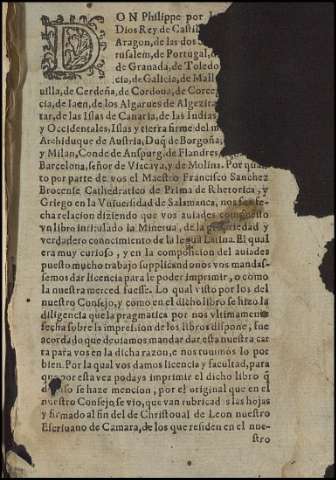 DON Philippe por l
Dios Rey de Castil
Aragon, de las dos
rusalem, de Portugal, d
de Granada, de Toledo
cia, de Galicia, de Mall
uilla, de Cerdeña, de Cordoua, de Corce
cia, de Iaen, de los Algarues de Algezira
tar, de las Islas de Canaria, de las Indias
y Occidentales, Islas y tierra firme del m
Archiduque de Austria, Duq̃ de Borgoña,
y Milan, Conde de Anspurg, de Flandres,
Barcelona, señor de Viscaya, y de Molina. Por quan
to por parte de vos el Maestro Francisco Sanchez
Brocense, Cathedratico de Prima de Rhetorica, y
Griego en la Vniuersidad de Salamanca, nos fue fe
cha relacion diziendo que vos auiades compuesto
vn libro intitulado la Minerua, de la propriedad y
verdadero conocimiento de la lengua Latina. El qual
era muy curioso, y en la composicion del auiades
puesto mucho trabajo supplicandonos vos mandas-
semos dar licencia para le poder imprimir, o como
la nuestra merced fuesse. Lo qual visto por los del
nuestro Consejo, y como en el dicho libro se hizo la
diligencia que la pragmatica por nos vltimamente
fecha sobre la impression de los libros dispone, fue
acordado que deuiamos mandar dar esta nuestra car
ta para vos en la dicha razon, e nos tuuimos lo por
bien. Por la qual vos damos licencia y facultad, para
que por esta vez podays imprimir el dicho libro q̃
de suso se haze mencion, por el original que en el
nuestro Consejo se vio, que van rubricadas las hojas
y firmado al fin del de Christoual de Leon nuestro
Escriuano de Camara, de los que residen en el nue-
stro